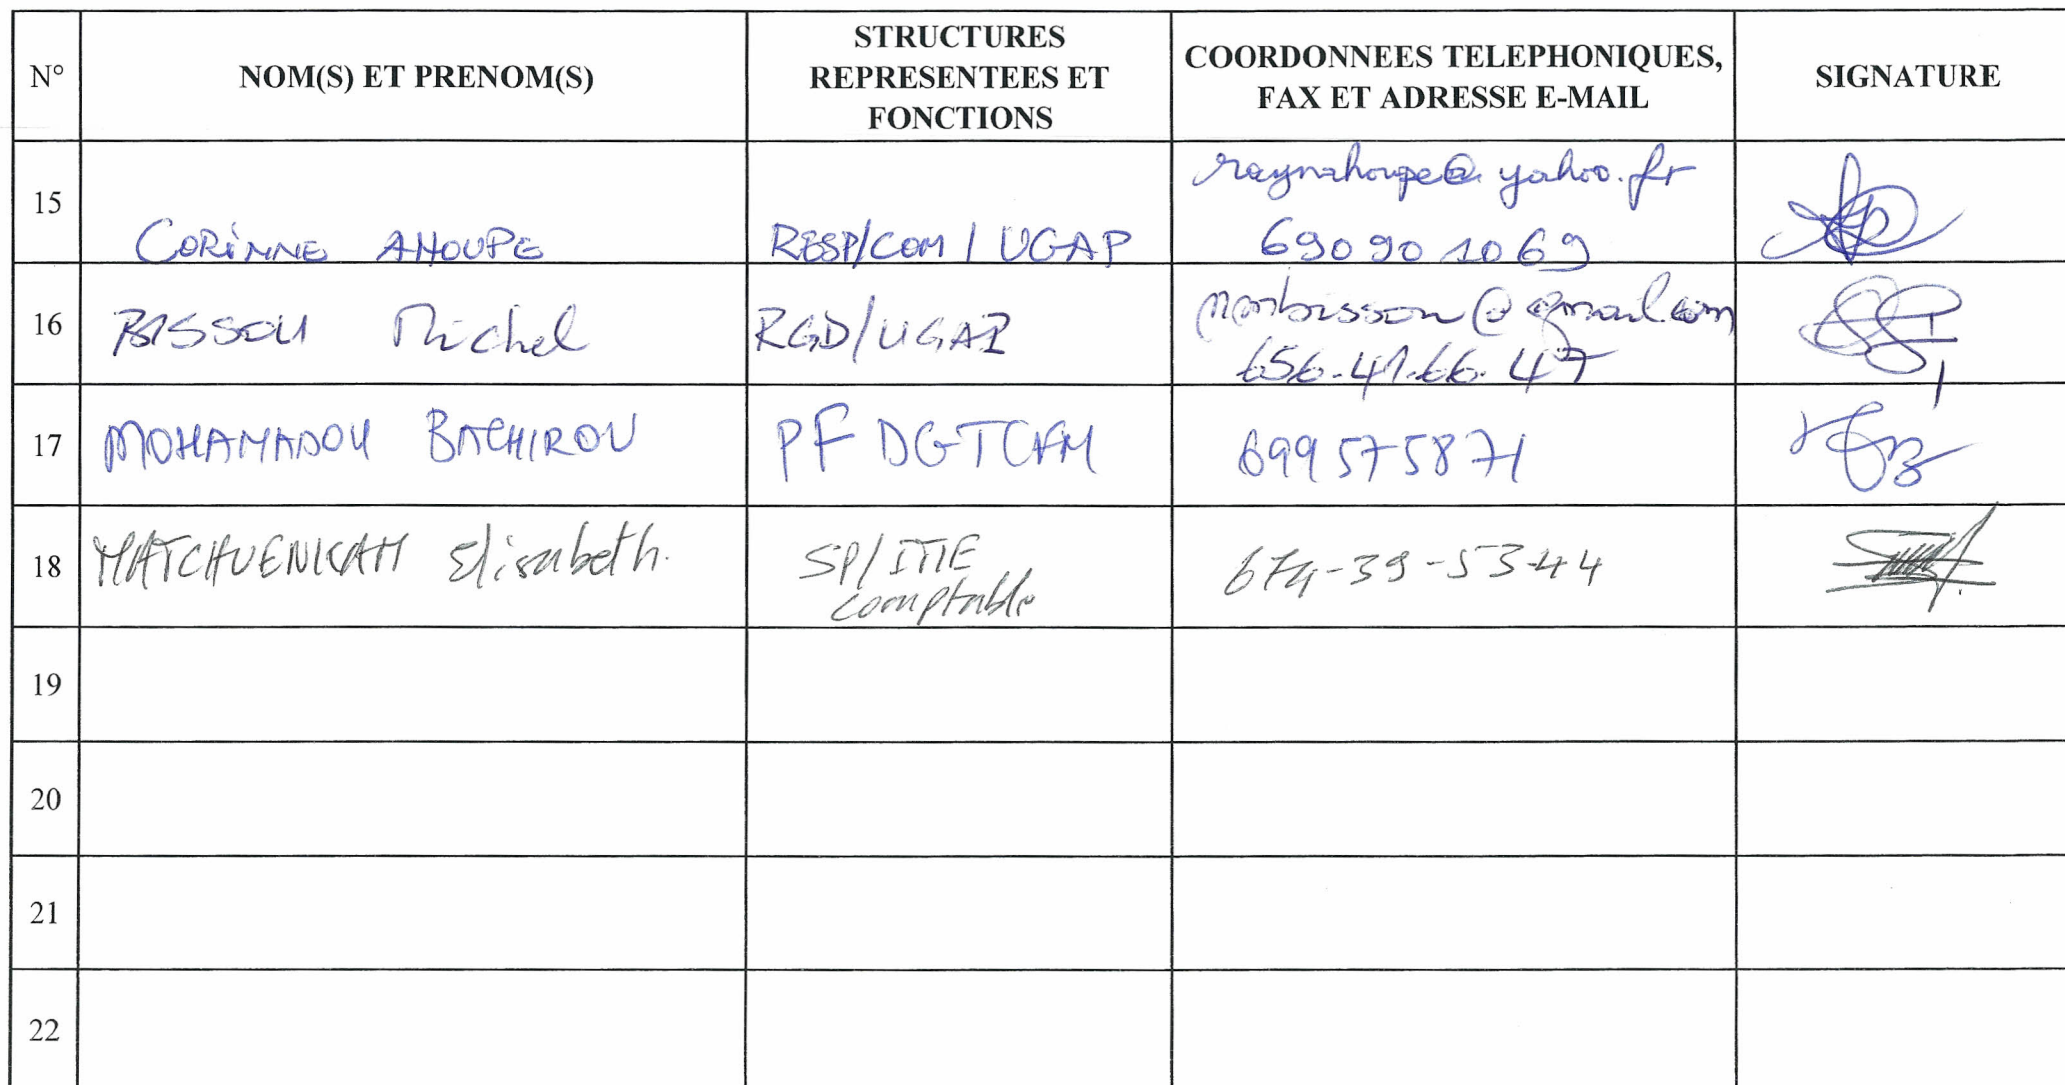 N° NOM(S) ET PRENOM(S) STRUCTURES REPRESENTEES ET FONCTIONS COORDONNEES TELEPHONIQUES, FAX ET ADRESSE E-MAIL SIGNATURE
15 CORINNE AHOUPE RESP/COM / UGAP raynahoupe@yahoo.fr
690 90 10 69
16 BISSOU Michel RGD/UGAP
656.41.66.47
17 MOHAMADOU BACHIROU PF DGTCFM 699575871
18 MATCHUENKAM Elisabeth. SP/ITIE 674-39-53-44
comptable
19
20
21
22